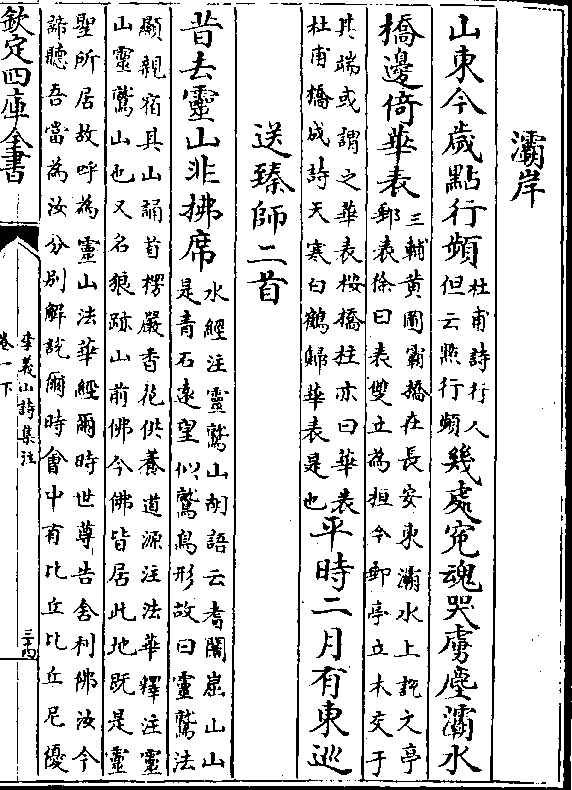 灞岸
山東今歲點行頻
杜甫詩行人
但云㸃行頻
幾處寃魂哭虜塵灞水
橋邊倚華表
三輔黄圖霸橋在長安東灞水上説文亭
郵表徐曰表雙立為桓今郵亭立木交于
其端或謂之華表桉橋柱亦曰華表
杜甫橋成詩天寒白鶴歸華表是也
平時二月有東巡
送臻師二首
昔去靈山非拂席
水經注靈鷲山胡語云耆闍崛山山
是青石逺望似鷲鳥形故曰靈鷲法
顯親宿其山誦首楞嚴香花供養道源注法華釋注靈
山靈鷲山也又名狼跡山前佛今佛皆居此地既是靈
聖所居故呼為靈山法華經爾時世尊告舎利佛汝今
諦聽吾當為汝分别解説爾時會中有比丘比丘尼優
欽定四庫全書
李義山詩集注
卷一下
三十四